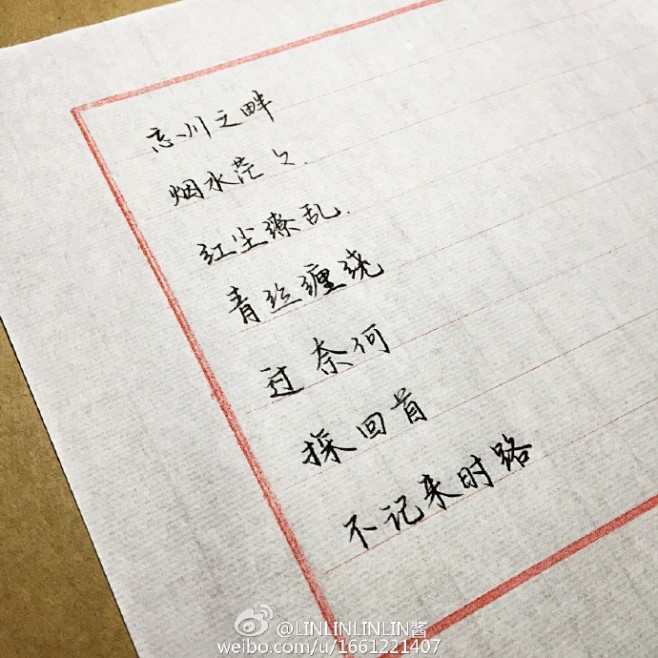 忘川之畔
烟水茫々.
红尘缭乱.
青丝缠绕
过奈何
探回首
不记来时路
@LINLINLINLIN酱
weibo.com/u/1661221407